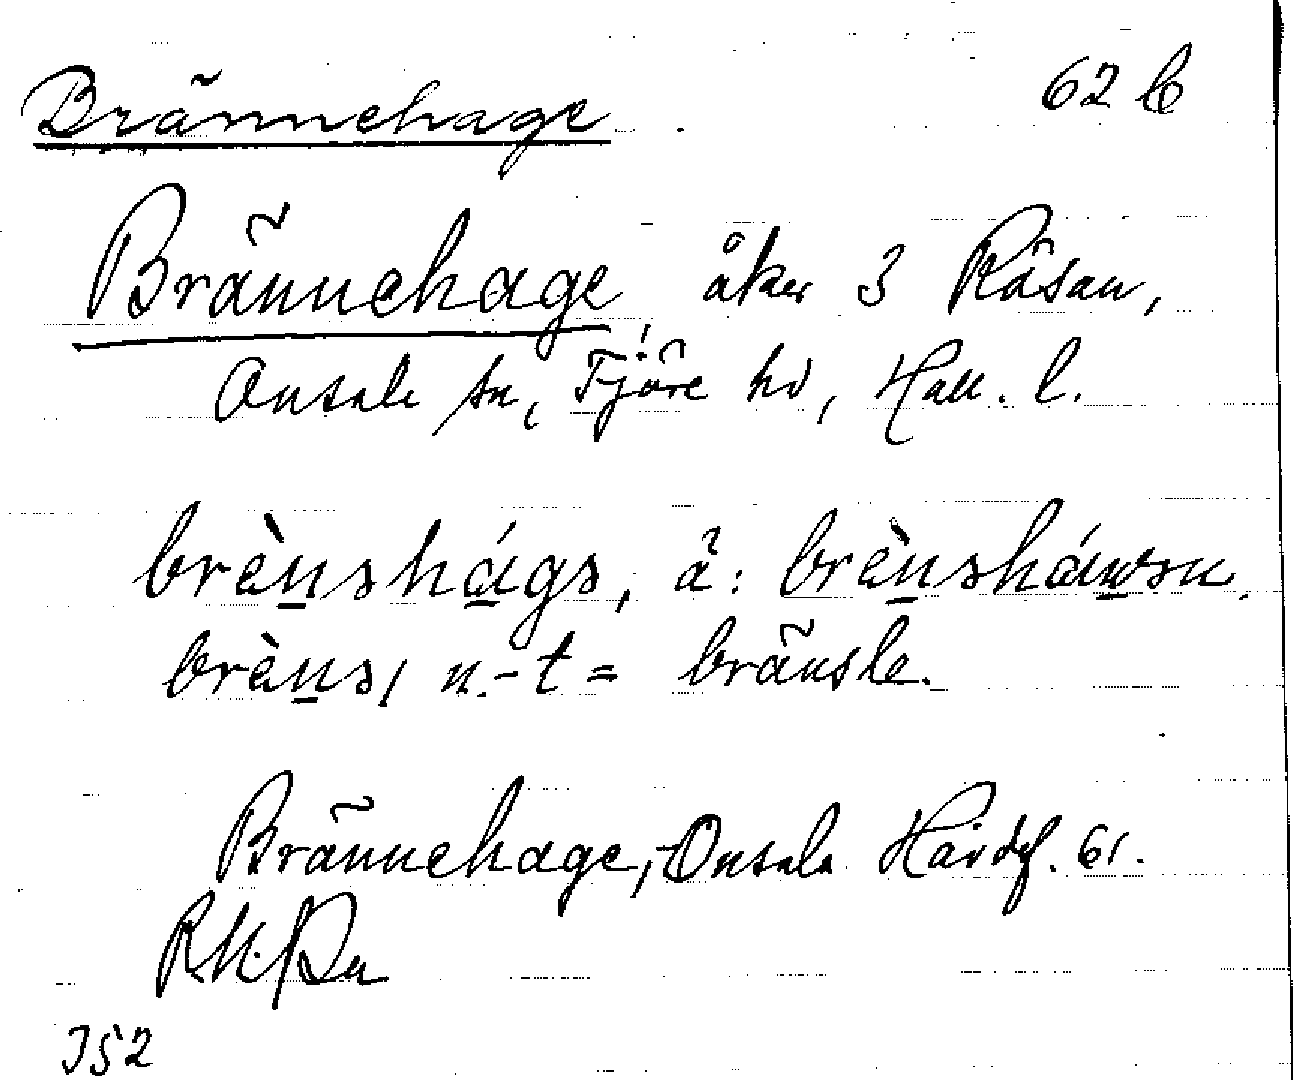 Brännehage 62 b
Brännehage, åker 3 Råsan,
Onsala sn, Fjäre hd, Hall. l.
brènshágs, å: brènsháwsn.
brèns, n. -t = bränsle.
Brännehage, Onsala